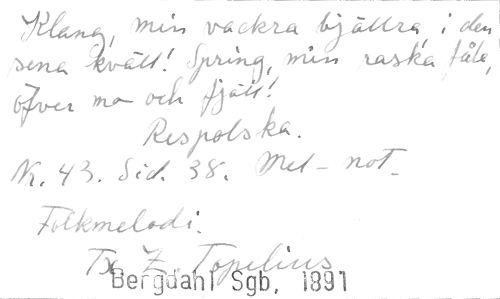 Klang, min vackra bjällra, i den
sena kväll! Spring, min raska fåle,
öfver mo och fjäll!
Respolska.
Nr. 43. Sid. 38. Mel-not-
Folkmelodi.
Tx Z. Topelius
Bergdahl Sgb, 1891